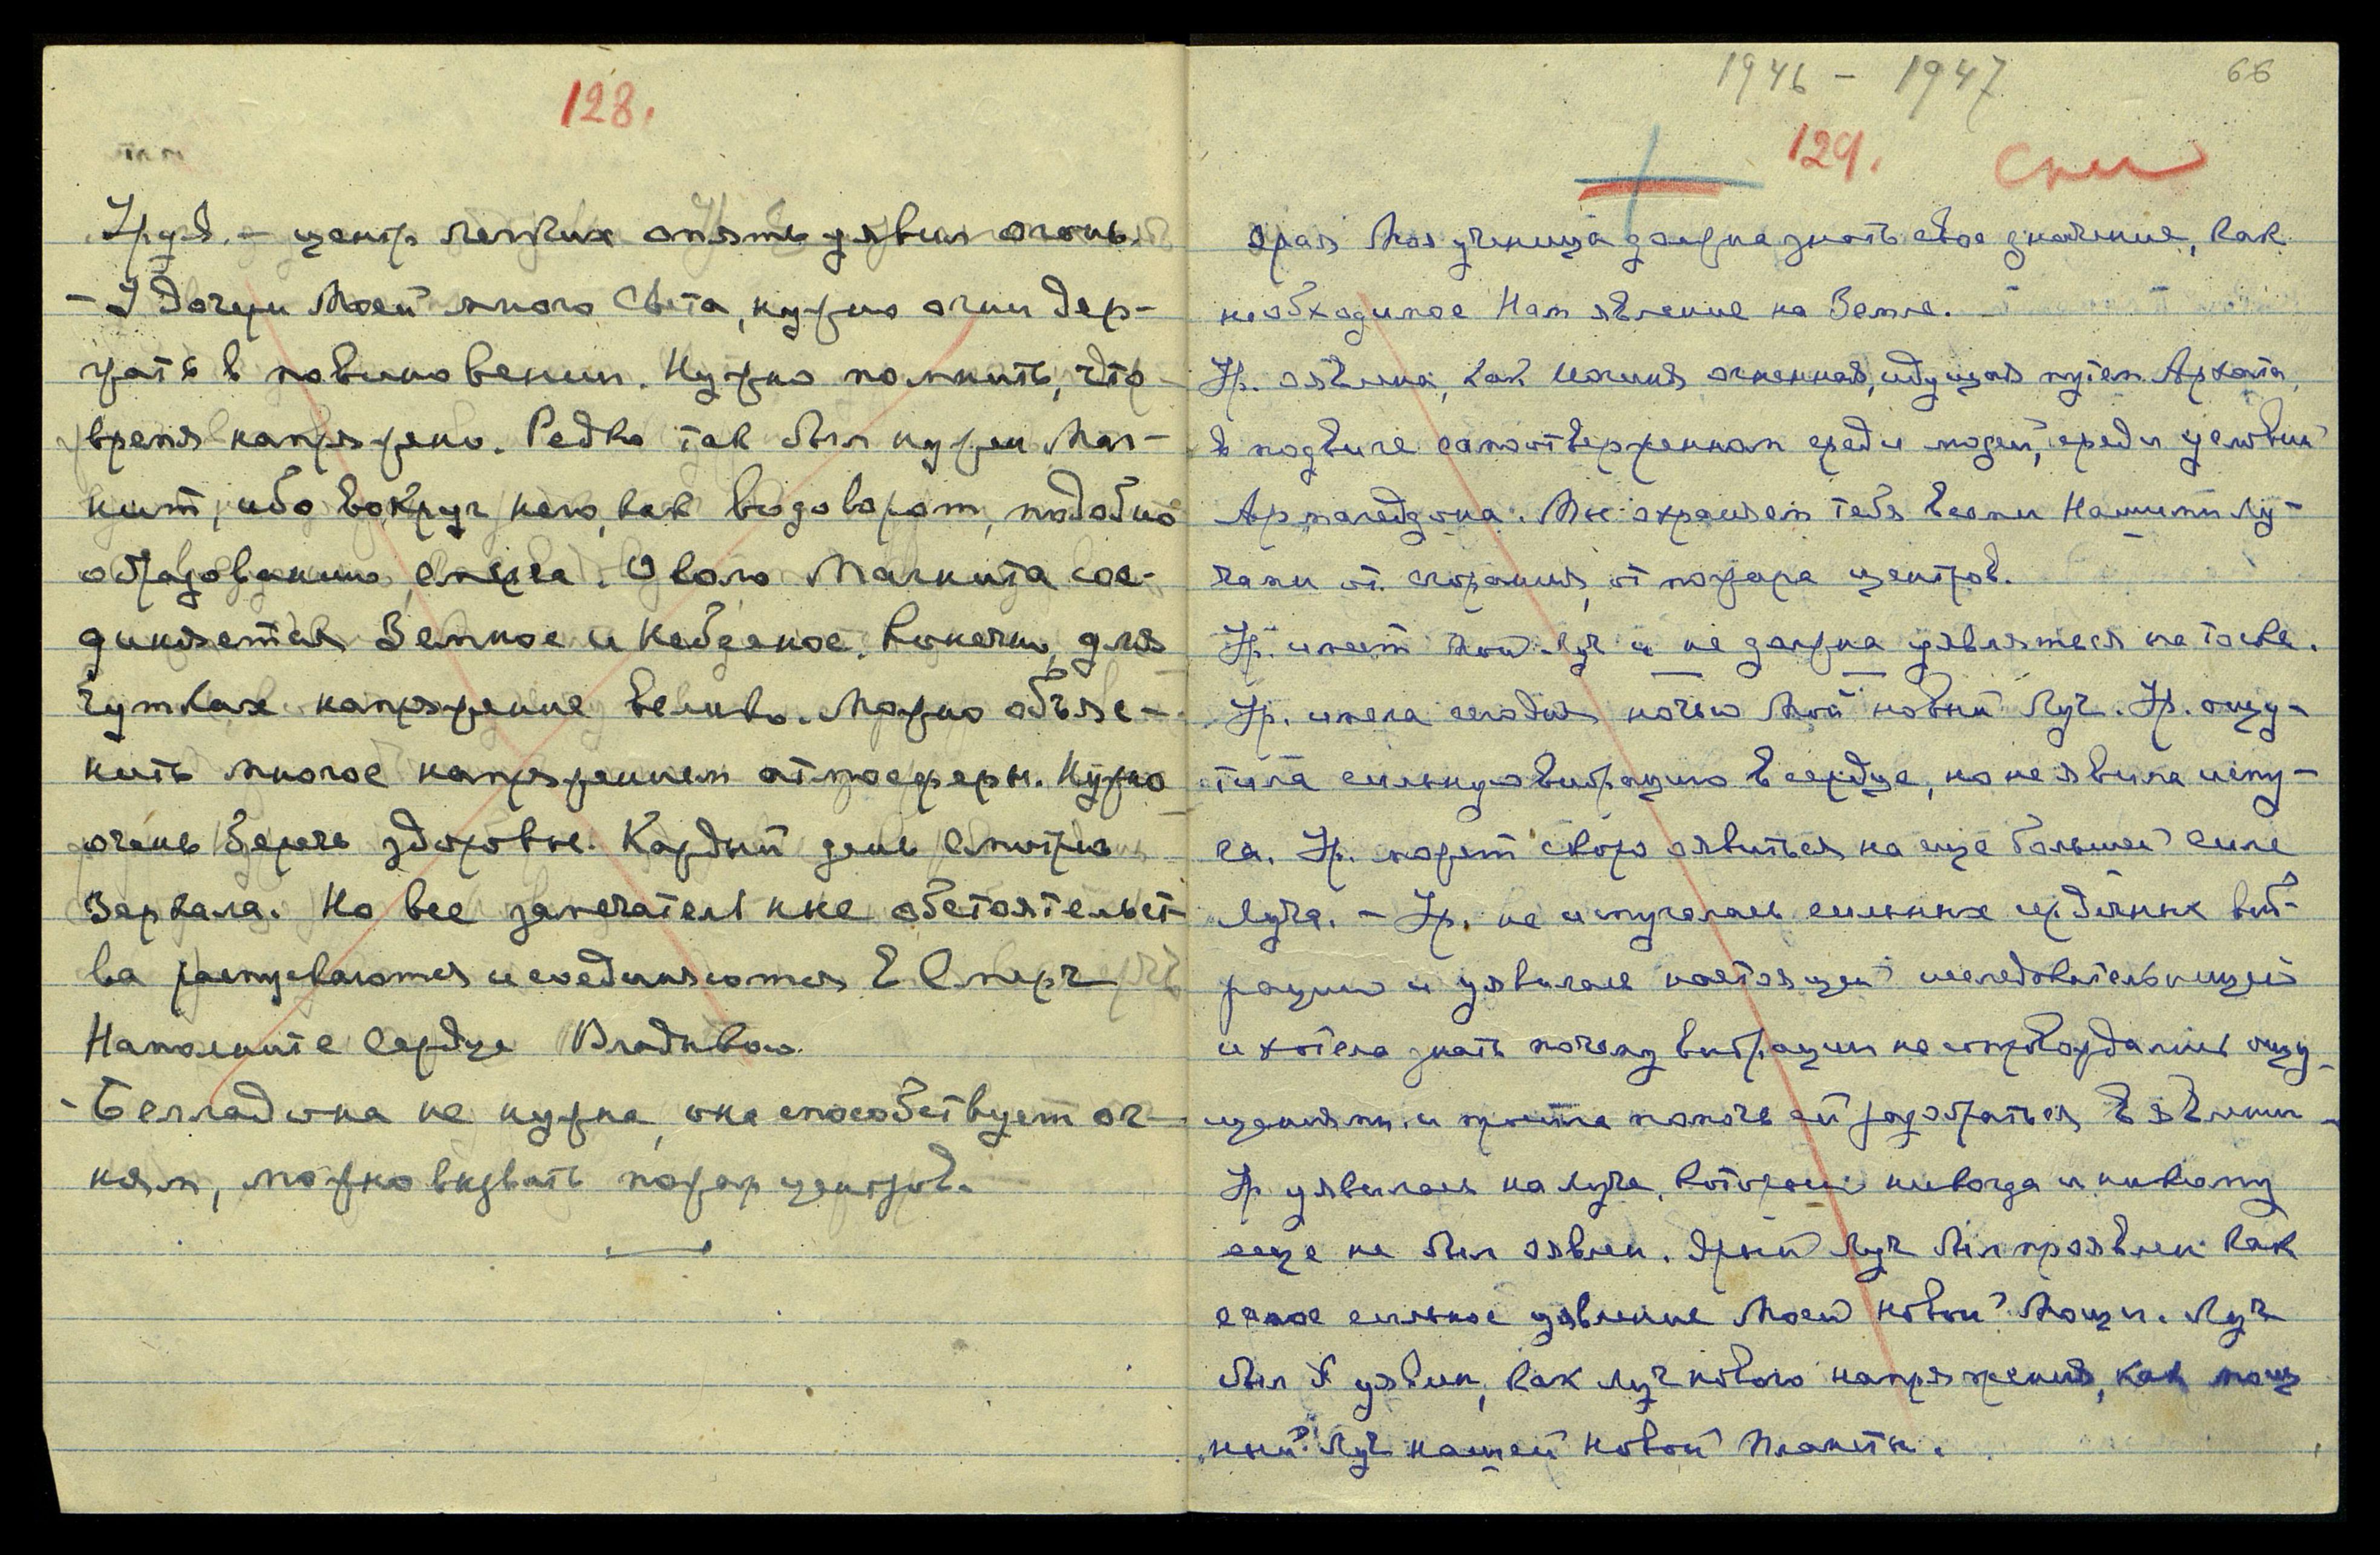 128.
Ур. я. – центр легких опять уявил огонь.
– У Дочери Моей много Света, нужно огни дер-
жать в повиновении. Нужно помнить, что
время напряжено. Редко так был нужен Маг-
нит, ибо вокруг него, как водоворот, подобно
образованию смерча. Около Магнита сое-
диняется Земное и Небесное. Конечно, для
чутких напряжение велико. Можно объяс-
нить многое напряжением атмосферы. Нужно
очень беречь здоровье. Каждый день смотрю
Зеркала. Но все замечательные обстоятельст-
ва распускаются и соединяются в Смерч
Наполните Сердце Владыкою.
– Белладонна не нужна, она способствует ог-
ням, можно вызвать пожар центров.
1946 – 1947
66
129.
Сни
Ярая Моя ученица должна знать свое значение, как
необходимое Нам явление на Земле.
Ур. оявлена, как йогиня огненная, идущая путем Архата,
в подвиге самоотверженном среди людей, среди условий
Армагеддона. Мы охраняем тебя всеми Нашими Лу-
чами от сгорания, от пожара центров.
Ур. имеет Мой Луч и не должна уявляться на тоске.
Ур. имела сегодня ночью Мой новый Луч. Ур. ощу-
тила сильную вибрацию в сердце, но не явила испу-
га. Ур. может скоро оявиться на еще большей силе
Луча. – Ур. не испугалась сильных сердечных виб-
раций и уявилась настоящей исследовательницей
и хотела знать почему вибрации не сопровождались ощу-
щениями и просила помочь ей разобраться в явлении
Ур уявилась на луче, который никогда и никому
еще не был оявлен. Ярый Луч был проявлен как
самое сильное уявление Моей новой Мощи. Луч
был уявлен, как луч нового напряжения, как мощ
ный Луч нашей новой Планеты.